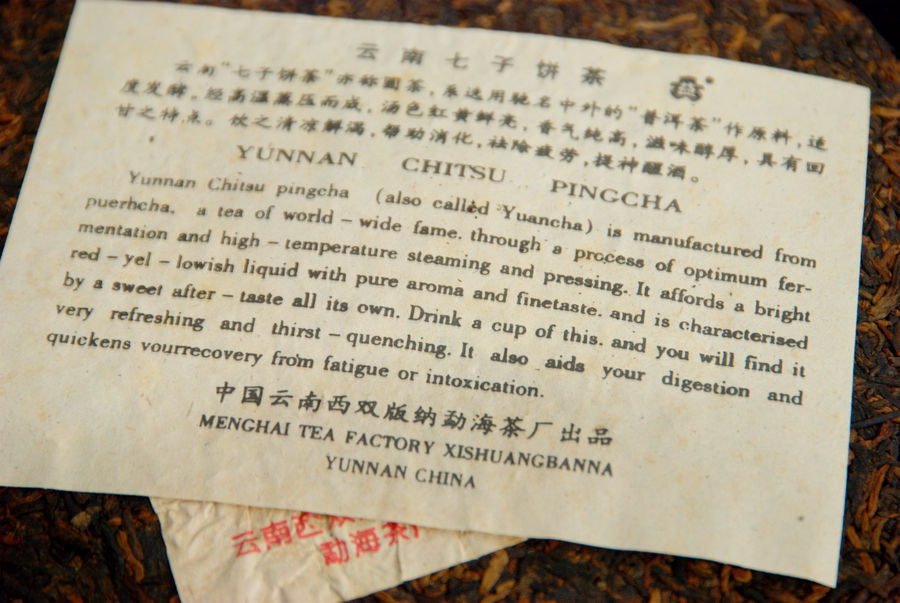 云南七子饼茶
云南“七子饼茶”亦称圆茶，系选用驰名中外的“普洱茶”作原料，适
度发酵，经高温蒸压而成，汤色红黄鲜亮，香气纯高，滋味醇厚，具有回
甘之特点。饮之清凉解渴，帮助消化，祛除疲劳，提神醒酒。
YUNNAN CHITSU PINGCHA
Yunnan Chitsu pingcha (also called Yuancha) is manufactured from
puerhcha, a tea of world-wide fame. through a process of optimum fer-
mentation and high-temperature steaming and pressing. It affords a bright
red-yel-lowish liquid with pure aroma and finetaste. and is characterised
by a sweet after-taste all its own. Drink a cup of this. and you will find it
very refreshing and thirst-quenching. It also aids your digestion and
quickens vourrecovery from fatigue or intoxication.
中国云南西双版纳勐海茶厂出品
MENGHAI TEA FACTORY XISHUANGBANNA
YUNNAN CHINA
云南西双
勐海茶厂